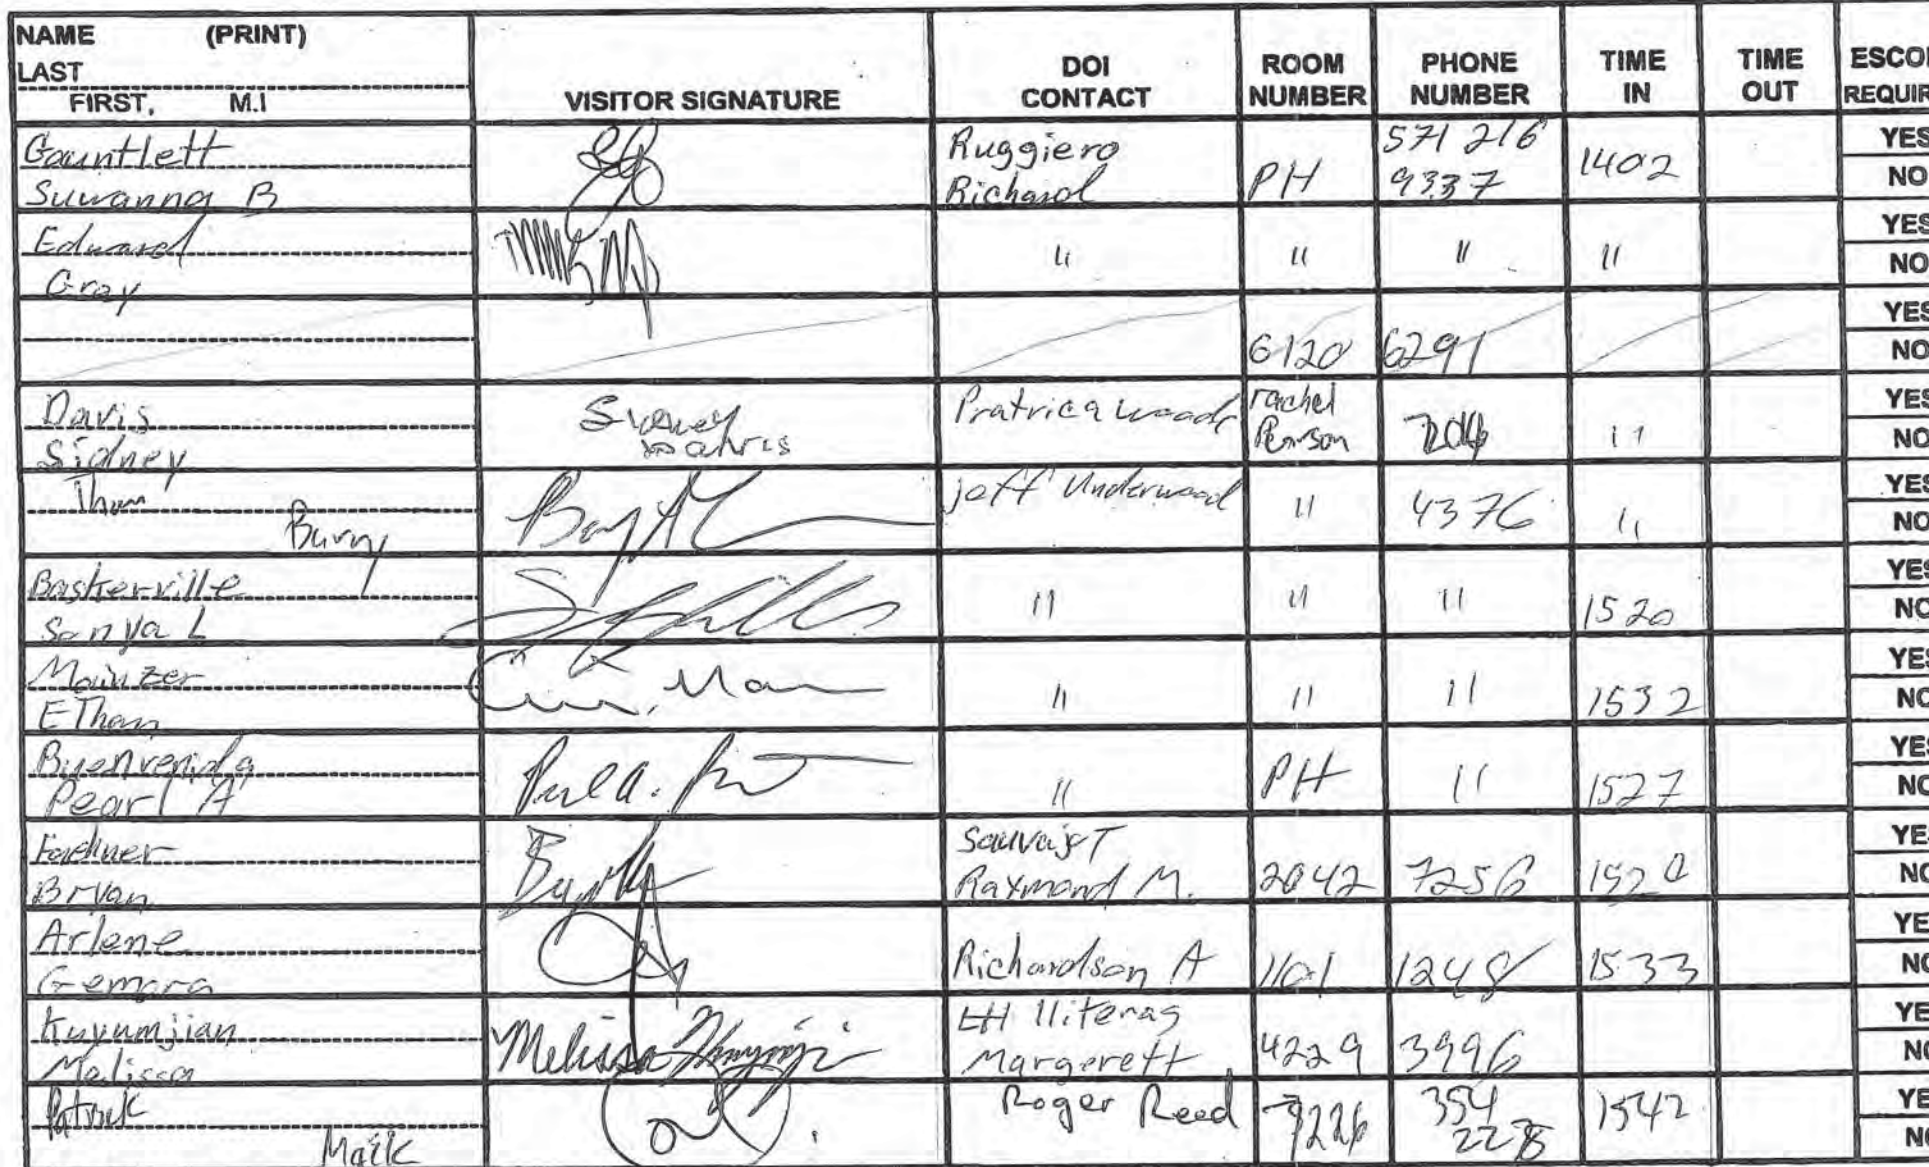 NAME (PRINT)
LAST
FIRST, M.I
VISITOR SIGNATURE
DOI CONTACT
ROOM NUMBER
PHONE NUMBER
TIME IN
TIME OUT
Gauntlett
Suwanna B
Ruggiero
Richard
PH
571 216
9337
1402
YES
NO
Edward
Gray
" " " "
YES
NO
6120 6291
YES
NO
Davis
Sidney
Sidney
Davis
Pratrica Woods
rachel
Pearson
"
YES
NO
Tham
Barry
Jeff Underwood
" 4376 "
YES
NO
Baskerville
Sonya L
" " " 1520
YES
NO
Mainzer
EThan
" " " 1532
YES
NO
Buenvenida
Pearl A
" PH " 1527
YES
NO
Faehner
Bryan
Sauvajot
Raymond M.
2042 7256 1520
YE
NO
Arlene
Gemora
Richardson A 1101 1248 1533
YE
NO
Kuyumjian
Melissa
Melissa
Margerett
4229 3996
YE
NO
Patrick
Mark
Roger Reed
354
1542
YE
NO